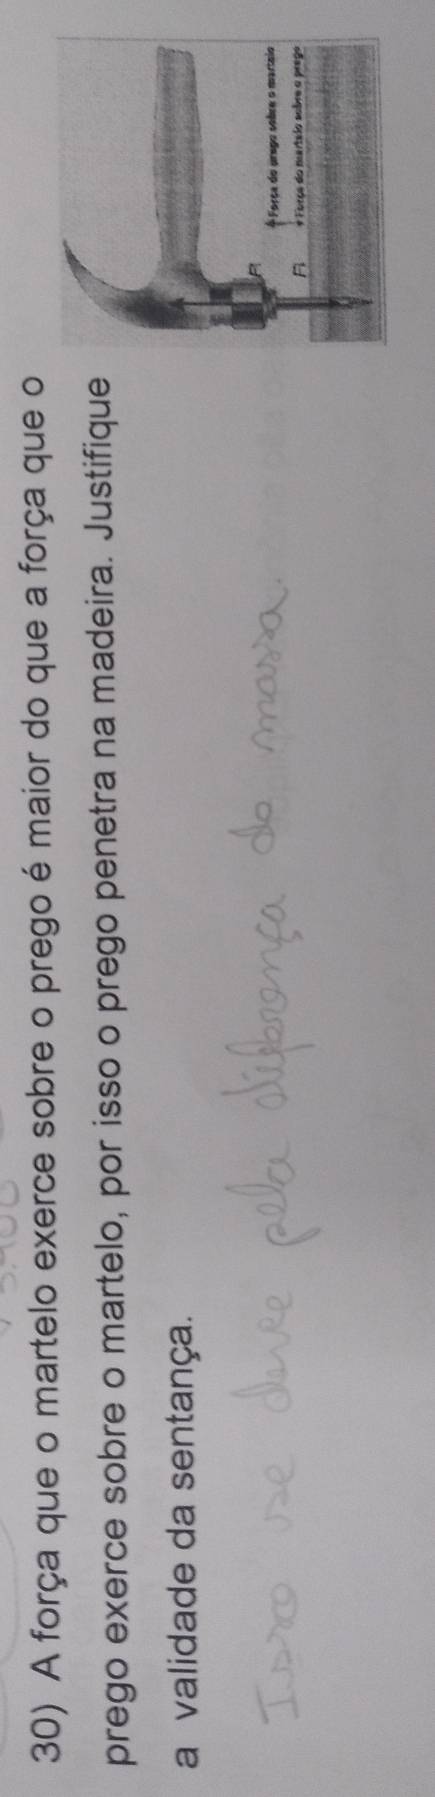 30) A força que o martelo exerce sobre o prego é maior do que a força que o
prego exerce sobre o martelo, por isso o prego penetra na madeira. Justifique
a validade da sentança.
Isso se deve pela diferença da massa.
F
Força do prego sobre o martelo
F
Força do martelo sobre o prego